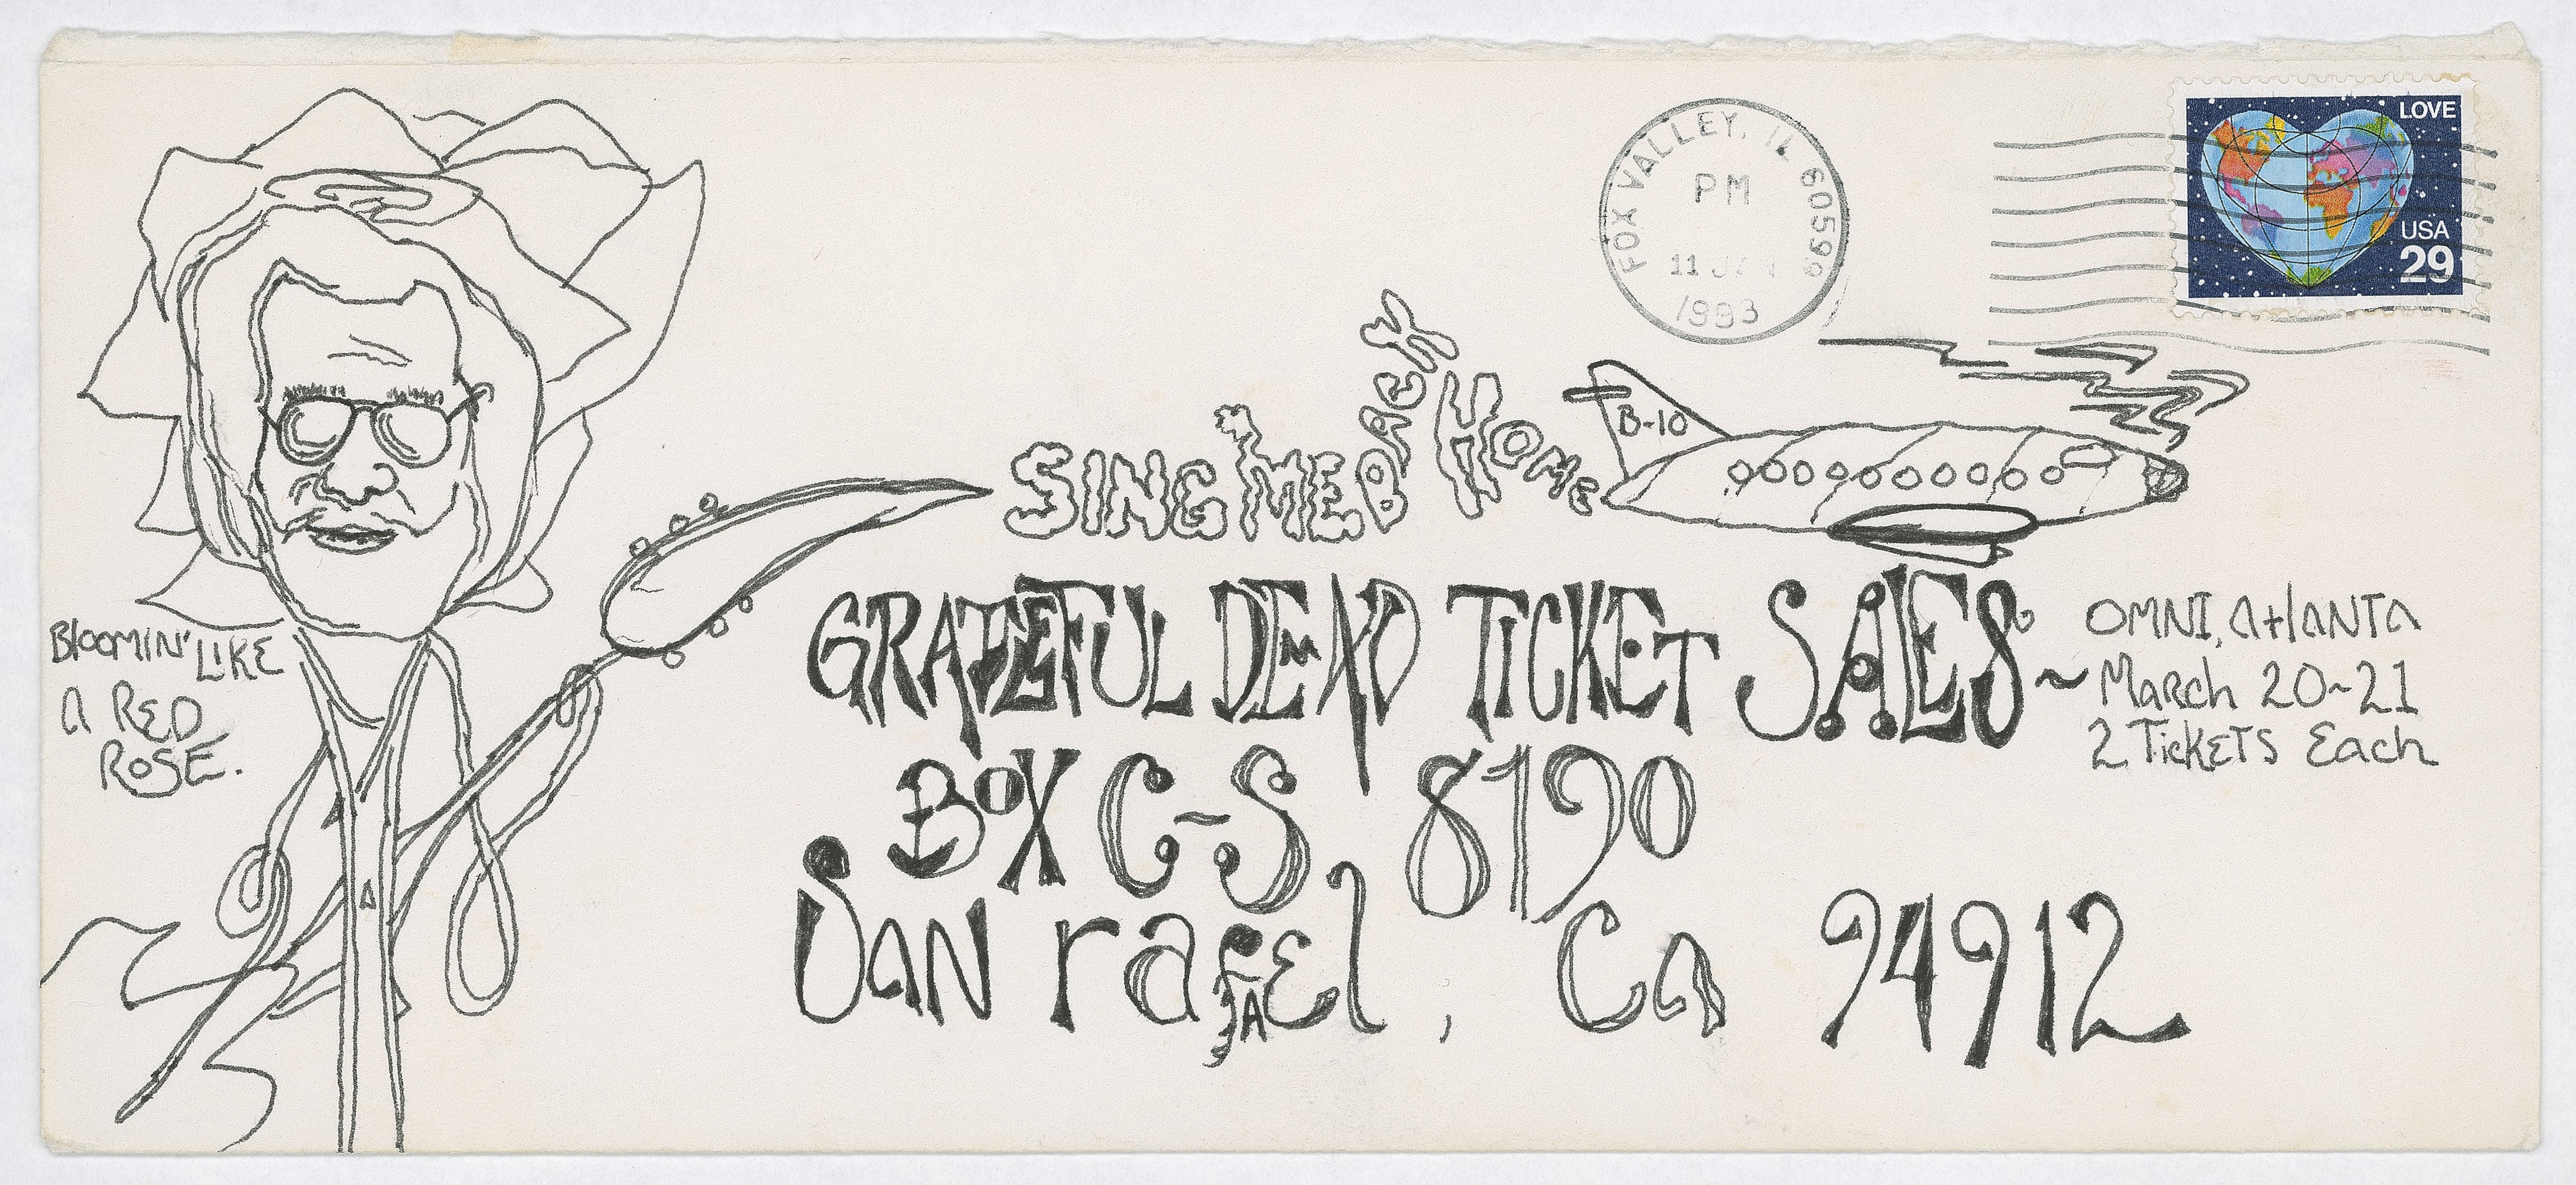 FOX VALLEY, IL 60599
PM
11 JAN
1993
LOVE
USA
29
SING ME BACK HOME
B-10
GRATEFUL DEAD TICKET SALES ~
BOX C-S 8190
San rafael, Ca 94912
OMNI, AtlANTA
March 20~21
2 TickETS Each
BlOOMIN' LIKE
A RED
ROSE.